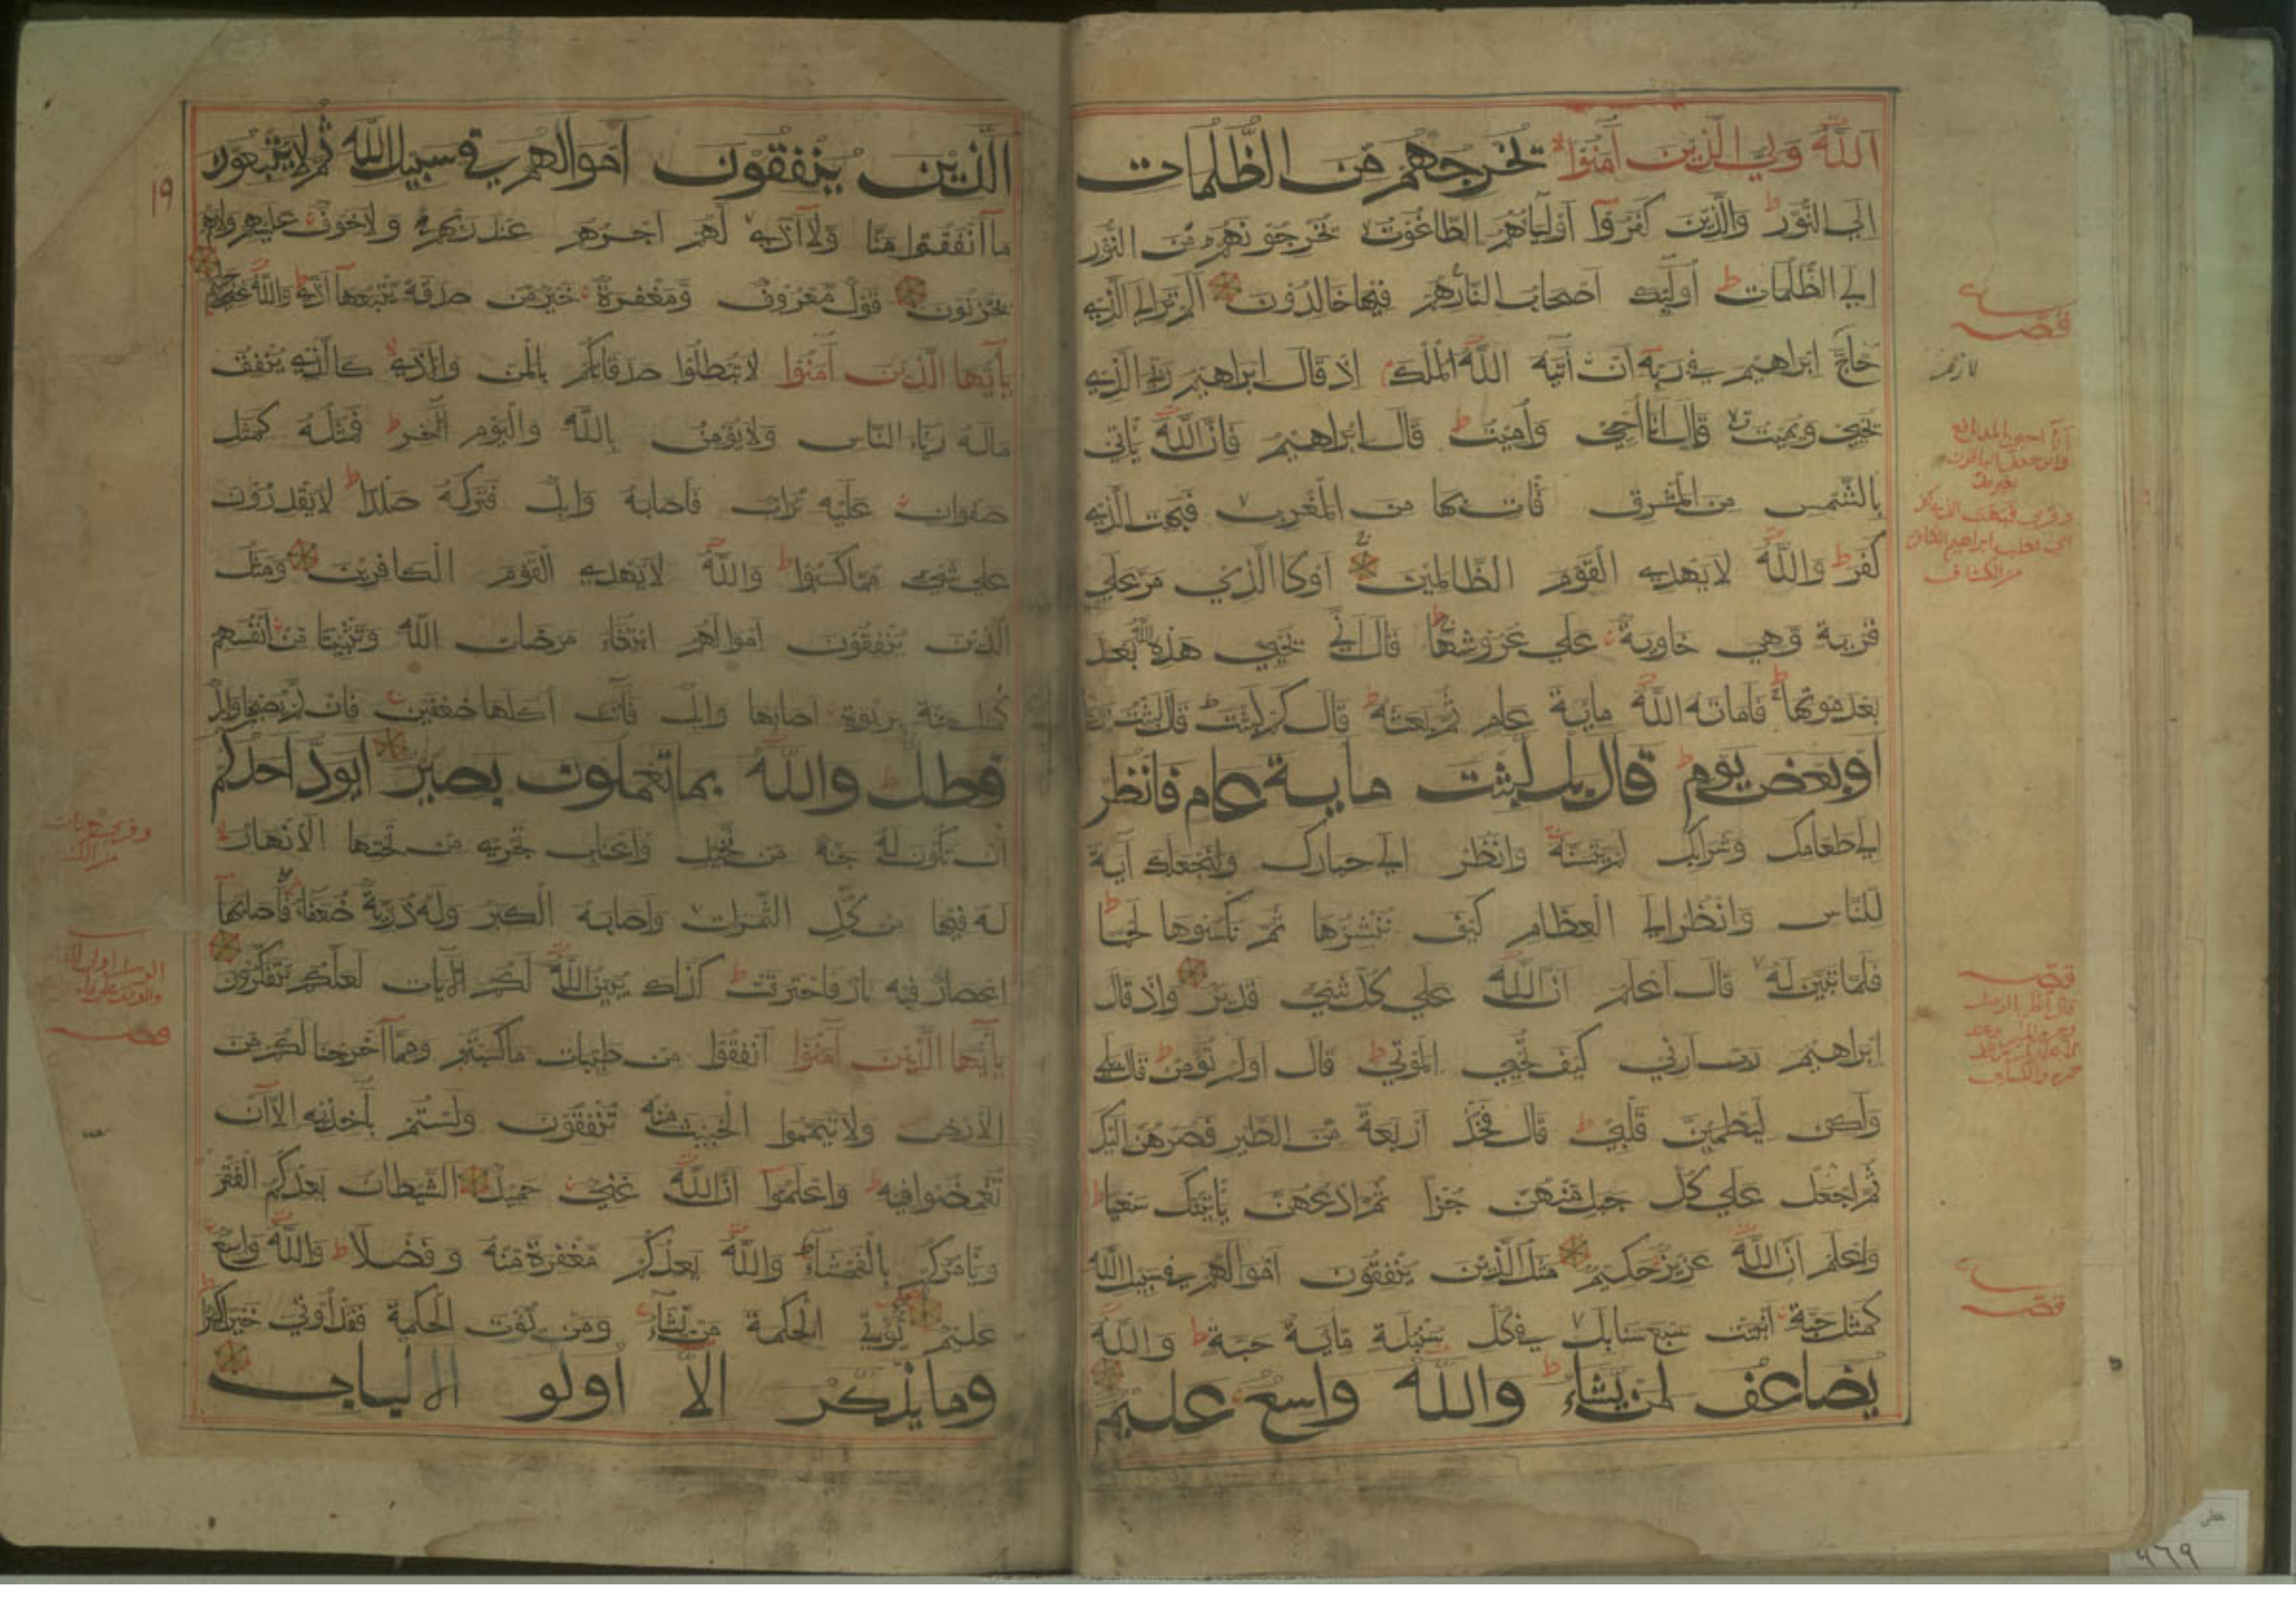 الله ولي الذين آمنوا يخرجهم من الظلمات
الي النور والذين كفروا اولياؤهم الطاغوت يخرجونهم من النور
الي الظلمات اولئك اصحاب النار هم فيها خالدون الم تر الي الذي
حاج ابراهيم في ربه ان اتيه الله الملك اذ قال ابراهيم ربي الذي
يحيي ويميت قال انا احيي واميت قال ابراهيم فان الله يأتي
بالشمس من المشرق فات بها من المغرب فبهت الذي
كفر والله لا يهدي القوم الظالمين او كا الذي مر علي
قرية وهي خاوية علي عروشها قال اني يحيي هذه الله بعد
بعد موتها فاماته الله ماية عام ثم بعثه قال كم لبثت قال لبثت يوما
او بعض يوم قال بل لبثت ماية عام فانظر
الي طعامك وشرابك لم يتسنه وانظر الي حمارك ولنجعلك آية
للناس وانظر الي العظام كيف ننشزها ثم نكسوها لحما
فلما تبين له قال اعلم ان الله علي كل شيء قدير واذ قال
ابراهيم رب ارني كيف تحيي الموتي قال اولم تؤمن قال بلي
ولكن ليطمين قلبي قال فخذ اربعة من الطير فصرهن اليك
ثم اجعل علي كل جبل منهن جزا ثم ادعهن يأتينك سعيا
واعلم ان الله عزيز حكيم مثل الذين ينفقون اموالهم في سبيل الله
كمثل حبة انبتت سبع سنابل في كل سنبلة ماية حبة والله
يضاعف لمن يشاء والله واسع عليم
قصه
لازم
قصه
قصه
الذين ينفقون اموالهم في سبيل الله ثم لا يتبعون
ما انفقوا منا ولا اذي لهم اجرهم عند ربهم ولا خوف عليهم ولا هم
يحزنون قول معروف ومغفرة خير من صدقة يتبعها اذي والله غني حليم
يأيها الذين آمنوا لا تبطلوا صدقاتكم بالمن والاذي كالذي ينفق
ماله رياء الناس ولا يؤمن بالله واليوم الآخر فمثله كمثل
صفوان عليه تراب فاصابه وابل فتركه صلدا لا يقدرون
علي شيء مما كسبوا والله لا يهدي القوم الكافرين ومثل
الذين ينفقون اموالهم ابتغاء مرضات الله وتثبيتا من انفسهم
كمثل جنة بربوة اصابها وابل فآتت اكلها ضعفين فان لم يصبها وابل
فطل والله بما تعملون بصير ايود احدكم
ان تكون له جنة من نخيل واعناب تجري من تحتها الانهار
له فيها من كل الثمرات واصابه الكبر وله ذرية ضعفاء فاصابها
اعصار فيه نار فاحترقت كذلك يبين الله لكم الآيات لعلكم تتفكرون
يأيها الذين آمنوا انفقوا من طيبات ما كسبتم ومما اخرجنا لكم من
الارض ولا تيمموا الخبيث منه تنفقون ولستم بآخذيه الا ان
تغمضوا فيه واعلموا ان الله غني حميد الشيطان يعدكم الفقر
ويأمركم بالفحشاء والله يعدكم مغفرة منه وفضلا والله واسع
عليم يؤتي الحكمة من يشاء ومن يؤت الحكمة فقد اوتي خيرا كثيرا
وما يذكر الا اولو الالباب
١٩
قصه
خطى
٩٦٩